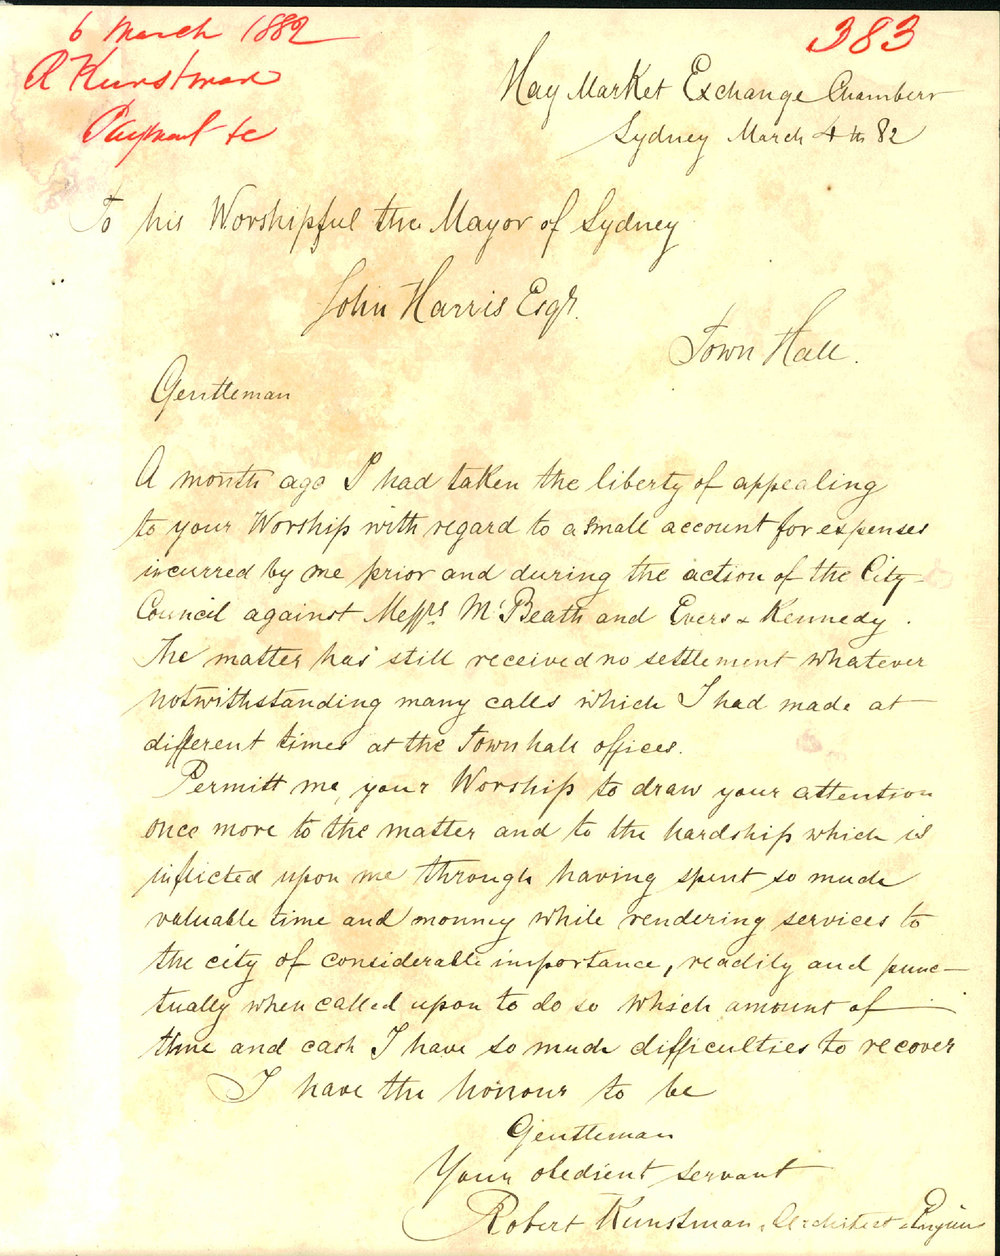 6 March 1882
R Kunstman
Payment &c
383
Hay Market Exchange Chambers
Sydney March 4th 82
To his Worshipful the Mayor of Sydney
John Harris Esqr.
Town Hall.
Gentleman
A month ago I had taken the liberty of appealing
to your Worship with regard to a small account for expenses
incurred by me prior and during the action of the City
Council against Messrs. McBeath and Evers & Kennedy.
The matter has still received no settlement whatever
notwithstanding many calls which I had made at
different times at the Town hall offices.
Permitt me, your Worship to draw your attention
once more to the matter and to the hardship which is
inflicted upon me through having spent so much
valuable time and monney while rendering services to
the city of considerable importance, readily and punc-
tually when called upon to do so which amount of
time and cash I have so much difficulties to recover
I have the honour to be
Gentleman
Your obedient servant
Robert Kunstman, Architect & Engineer